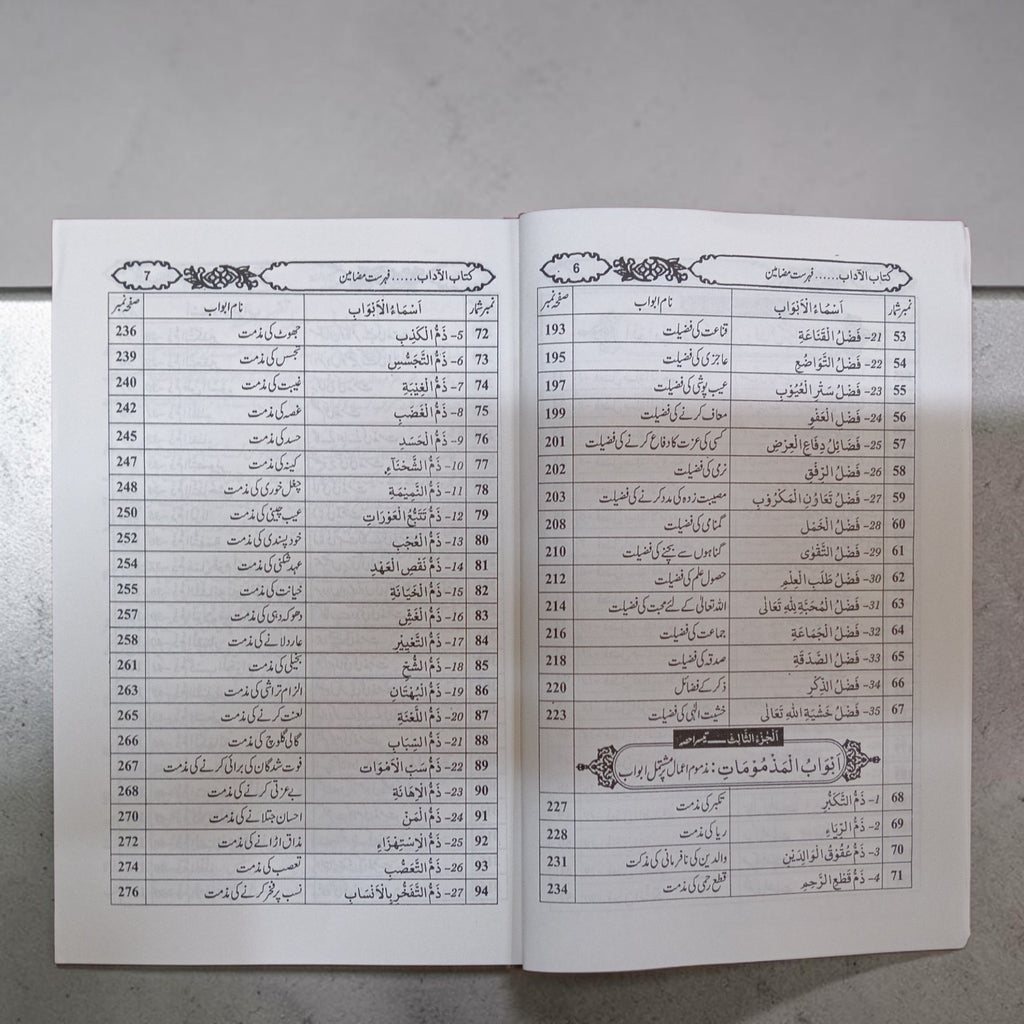 6 کتاب الآداب......فہرست مضامین
نمبر شمار اَسْمَاءُ الْاَبْوَابِ نام ابواب صفحہ نمبر
53 21- فَضْلُ الْقَنَاعَةِ قناعت کی فضیلت 193
54 22- فَضْلُ التَّوَاضُعِ عاجزی کی فضیلت 195
55 23- فَضْلُ سَتْرِ الْعُيُوْبِ عیب پوشی کی فضیلت 197
56 24- فَضْلُ الْعَفْوِ معاف کرنے کی فضیلت 199
57 25- فَضَائِلُ دِفَاعِ الْعِرْضِ کسی کی عزت کا دفاع کرنے کی فضیلت 201
58 26- فَضْلُ الرِّفْقِ نرمی کی فضیلت 202
59 27- فَضْلُ تَعَاوُنِ الْمَكْرُوْبِ مصیبت زدہ کی مدد کرنے کی فضیلت 203
60 28- فَضْلُ الْخَمْلِ گمنامی کی فضیلت 208
61 29- فَضْلُ التَّقْوٰى گناہوں سے بچنے کی فضیلت 210
62 30- فَضْلُ طَلَبِ الْعِلْمِ حصول علم کی فضیلت 212
63 31- فَضْلُ الْمُحَبَّةِ لِلّٰهِ تَعَالٰى اللہ تعالیٰ کے لئے محبت کی فضیلت 214
64 32- فَضْلُ الْجَمَاعَةِ جماعت کی فضیلت 216
65 33- فَضْلُ الصَّدَقَةِ صدقہ کی فضیلت 218
66 34- فَضْلُ الذِّكْرِ ذکر کے فضائل 220
67 35- فَضْلُ خَشْيَةِ اللهِ تَعَالٰى خشیت الٰہی کی فضیلت 223
اَلْجُزْءُ الثَّالِث — تیسرا حصہ
اَبْوَابُ الْمَذْمُوْمَاتِ: مذموم اعمال پر مشتمل ابواب
68 1- ذَمُّ التَّكَبُّرِ تکبر کی مذمت 227
69 2- ذَمُّ الرِّيَاءِ ریا کی مذمت 228
70 3- ذَمُّ عُقُوْقِ الْوَالِدَيْنِ والدین کی نافرمانی کی مذکت 231
71 4- ذَمُّ قَطْعِ الرَّحِمِ قطع رحمی کی مذمت 234
7 کتاب الآداب......فہرست مضامین
نمبر شمار اَسْمَاءُ الْاَبْوَابِ نام ابواب صفحہ نمبر
72 5- ذَمُّ الْكَذِبِ جھوٹ کی مذمت 236
73 6- ذَمُّ التَّجَسُّسِ تجسس کی مذمت 239
74 7- ذَمُّ الْغِيْبَةِ غیبت کی مذمت 240
75 8- ذَمُّ الْغَضَبِ غصہ کی مذمت 242
76 9- ذَمُّ الْحَسَدِ حسد کی مذمت 245
77 10- ذَمُّ الشَّحْنَآءِ کینہ کی مذمت 247
78 11- ذَمُّ النَّمِيْمَةِ چغل خوری کی مذمت 248
79 12- ذَمُّ تَتَبُّعِ الْعَوْرَاتِ عیب چینی کی مذمت 250
80 13- ذَمُّ الْعُجْبِ خود پسندی کی مذمت 252
81 14- ذَمُّ نَقْضِ الْعَهْدِ عہد شکنی کی مذمت 254
82 15- ذَمُّ الْخَيَانَةِ خیانت کی مذمت 255
83 16- ذَمُّ الْغَشِّ دھوکہ دہی کی مذمت 257
84 17- ذَمُّ التَّعْيِيْرِ عار دلانے کی مذمت 258
85 18- ذَمُّ الشُّحِّ بخیلی کی مذمت 261
86 19- ذَمُّ الْبُهْتَانِ الزام تراشی کی مذمت 263
87 20- ذَمُّ اللَّعْنَةِ لعنت کرنے کی مذمت 265
88 21- ذَمُّ السِّبَابِ گالی گلوچ کی مذمت 266
89 22- ذَمُّ سَبِّ الْاَمْوَاتِ فوت شدگان کی برائی کرنے کی مذمت 267
90 23- ذَمُّ الْاِهَانَةِ بے عزتی کرنے کی مذمت 268
91 24- ذَمُّ الْمَنِّ احسان جتلانے کی مذمت 270
92 25- ذَمُّ الْاِسْتِهْزَاءِ مذاق اڑانے کی مذمت 272
93 26- ذَمُّ التَّعَصُّبِ تعصب کی مذمت 274
94 27- ذَمُّ التَّفَخُّرِ بِالْاَنْسَابِ نسب پر فخر کرنے کی مذمت 276